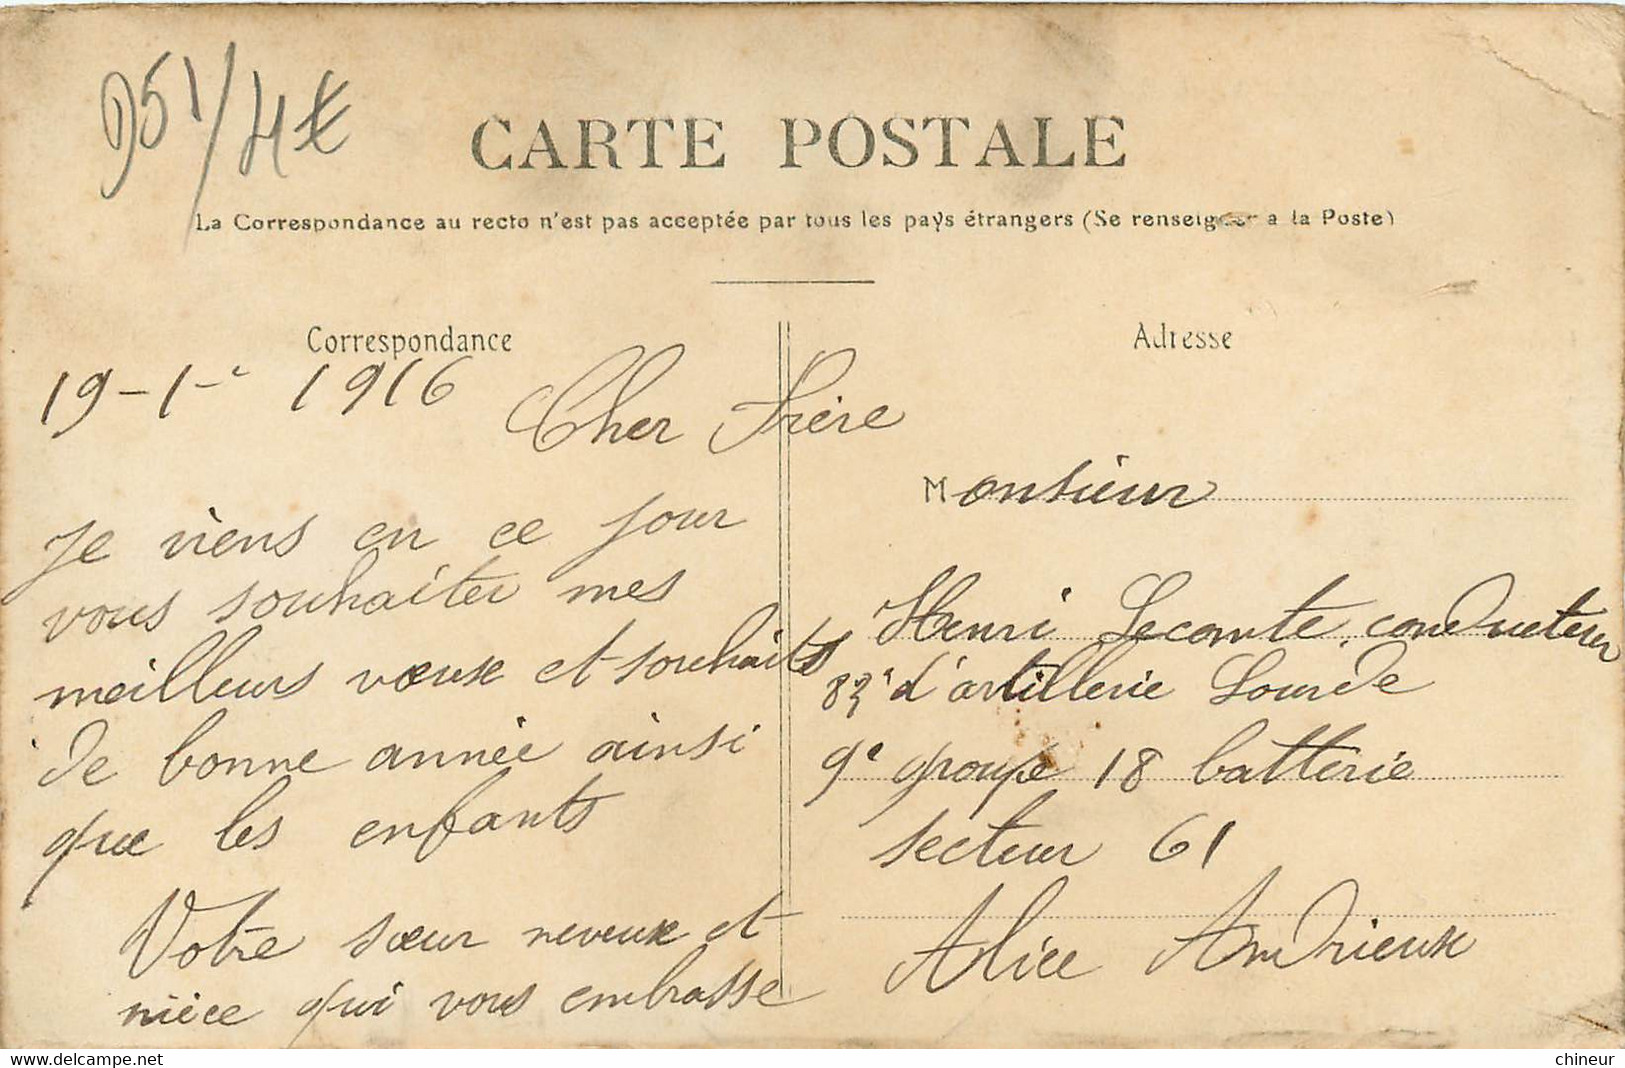 951/4€
CARTE POSTALE
La Correspondance au recto n'est pas acceptée par tous les pays étrangers (Se renseigner a la Poste)
Correspondance
19-1- 1916
Cher Frère
Je viens en ce jour
vous souhaiter mes
meilleurs vœux et souhaits
de bonne année ainsi
que les enfants
Votre sœur neveux et
nièce qui vous embrasse
Adresse
Monsieur
Henri Lecomte, conducteur
83e d'artillerie Lourde
9e groupe 18 batterie
secteur 61
Alice Andrieux
www.delcampe.net
chineur